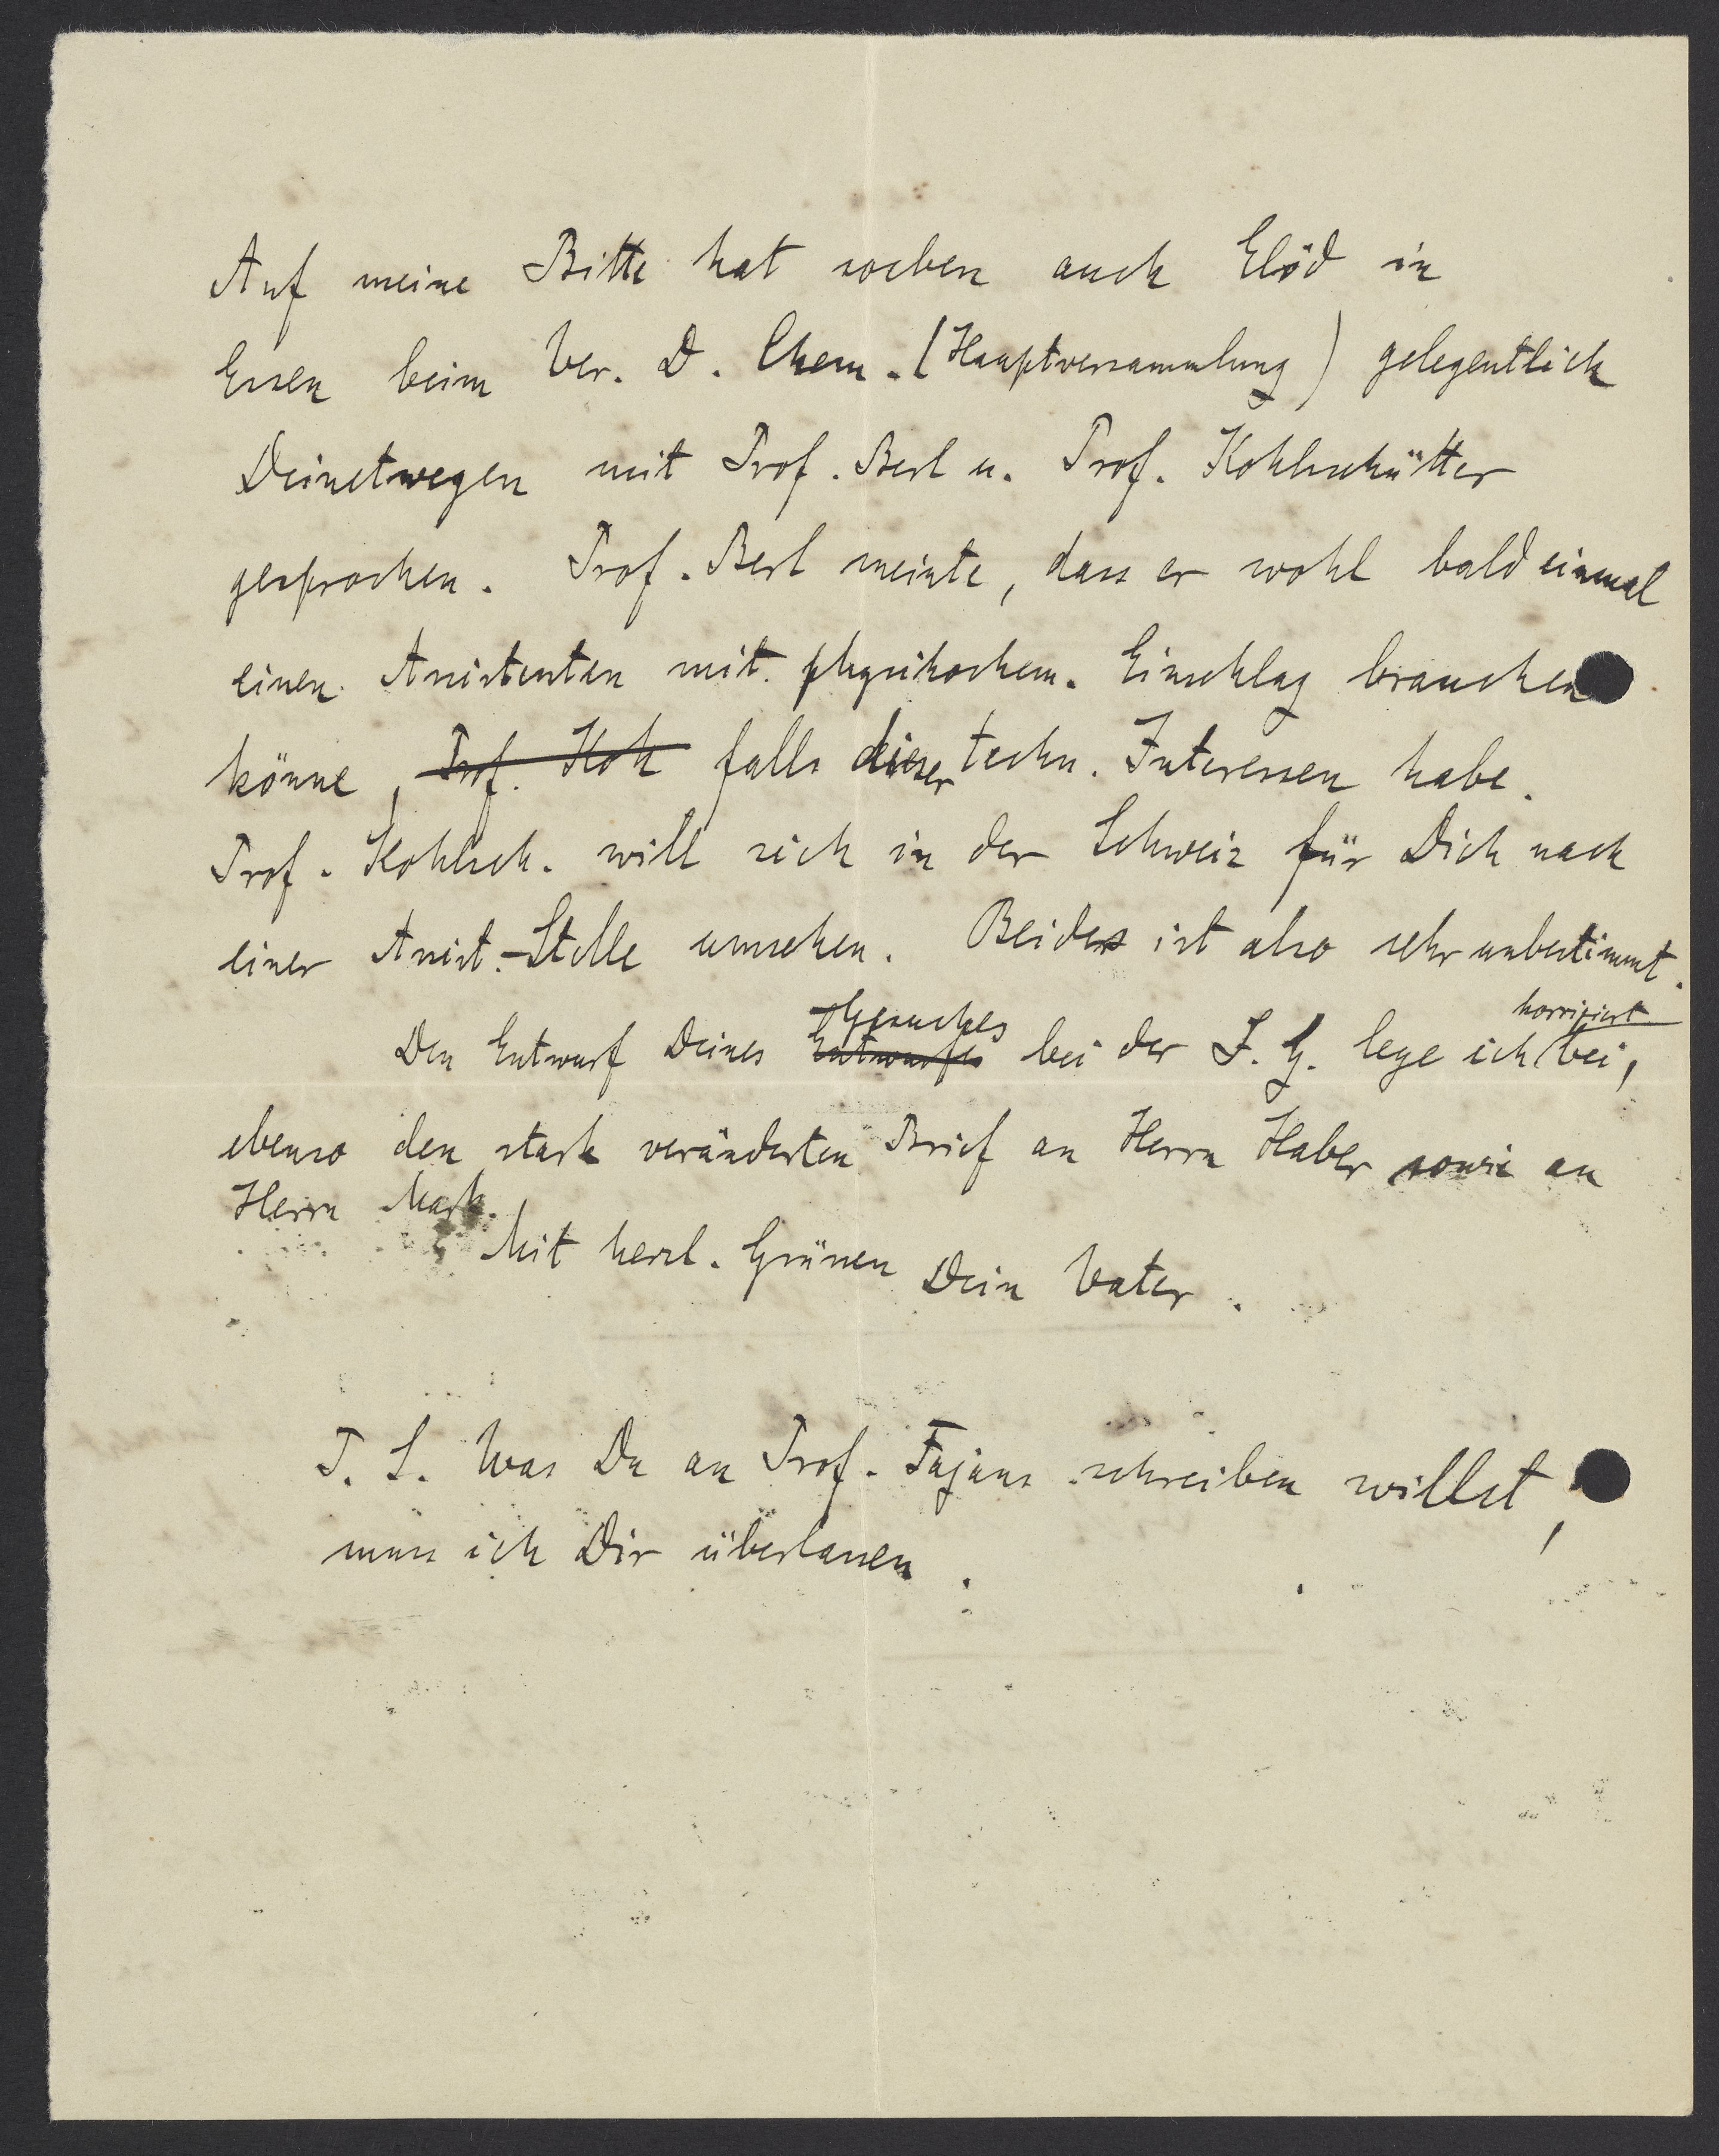 Auf meine Bitte hat soeben auch Elöd in
Essen beim Ver. D. Chem. (Hauptversammlung) gelegentlich
Deinetwegen mit Prof. Berl u. Prof. Kohlschütter
gesprochen. Prof. Berl meinte, dass er wohl bald einmal
einen Assistenten mit physikochem. Einschlag brauchen
könne, Prof. Koh falls dieser techn. Interessen habe.
Prof. Kohlsch. will sich in der Schweiz für Dich nach
einer Assist.-Stelle umsehen. Beides ist also sehr unbestimmt.
Gesuches korrigiert
Den Entwurf Deines Entwurfes bei der I. G. lege ich bei,
ebenso den stark veränderten Brief an Herrn Haber sowie an
Herrn Mark.
Mit herzl. Grüssen Dein Vater.
P. S. Was Du an Prof. Fajans schreiben willst,
muss ich Dir überlassen.